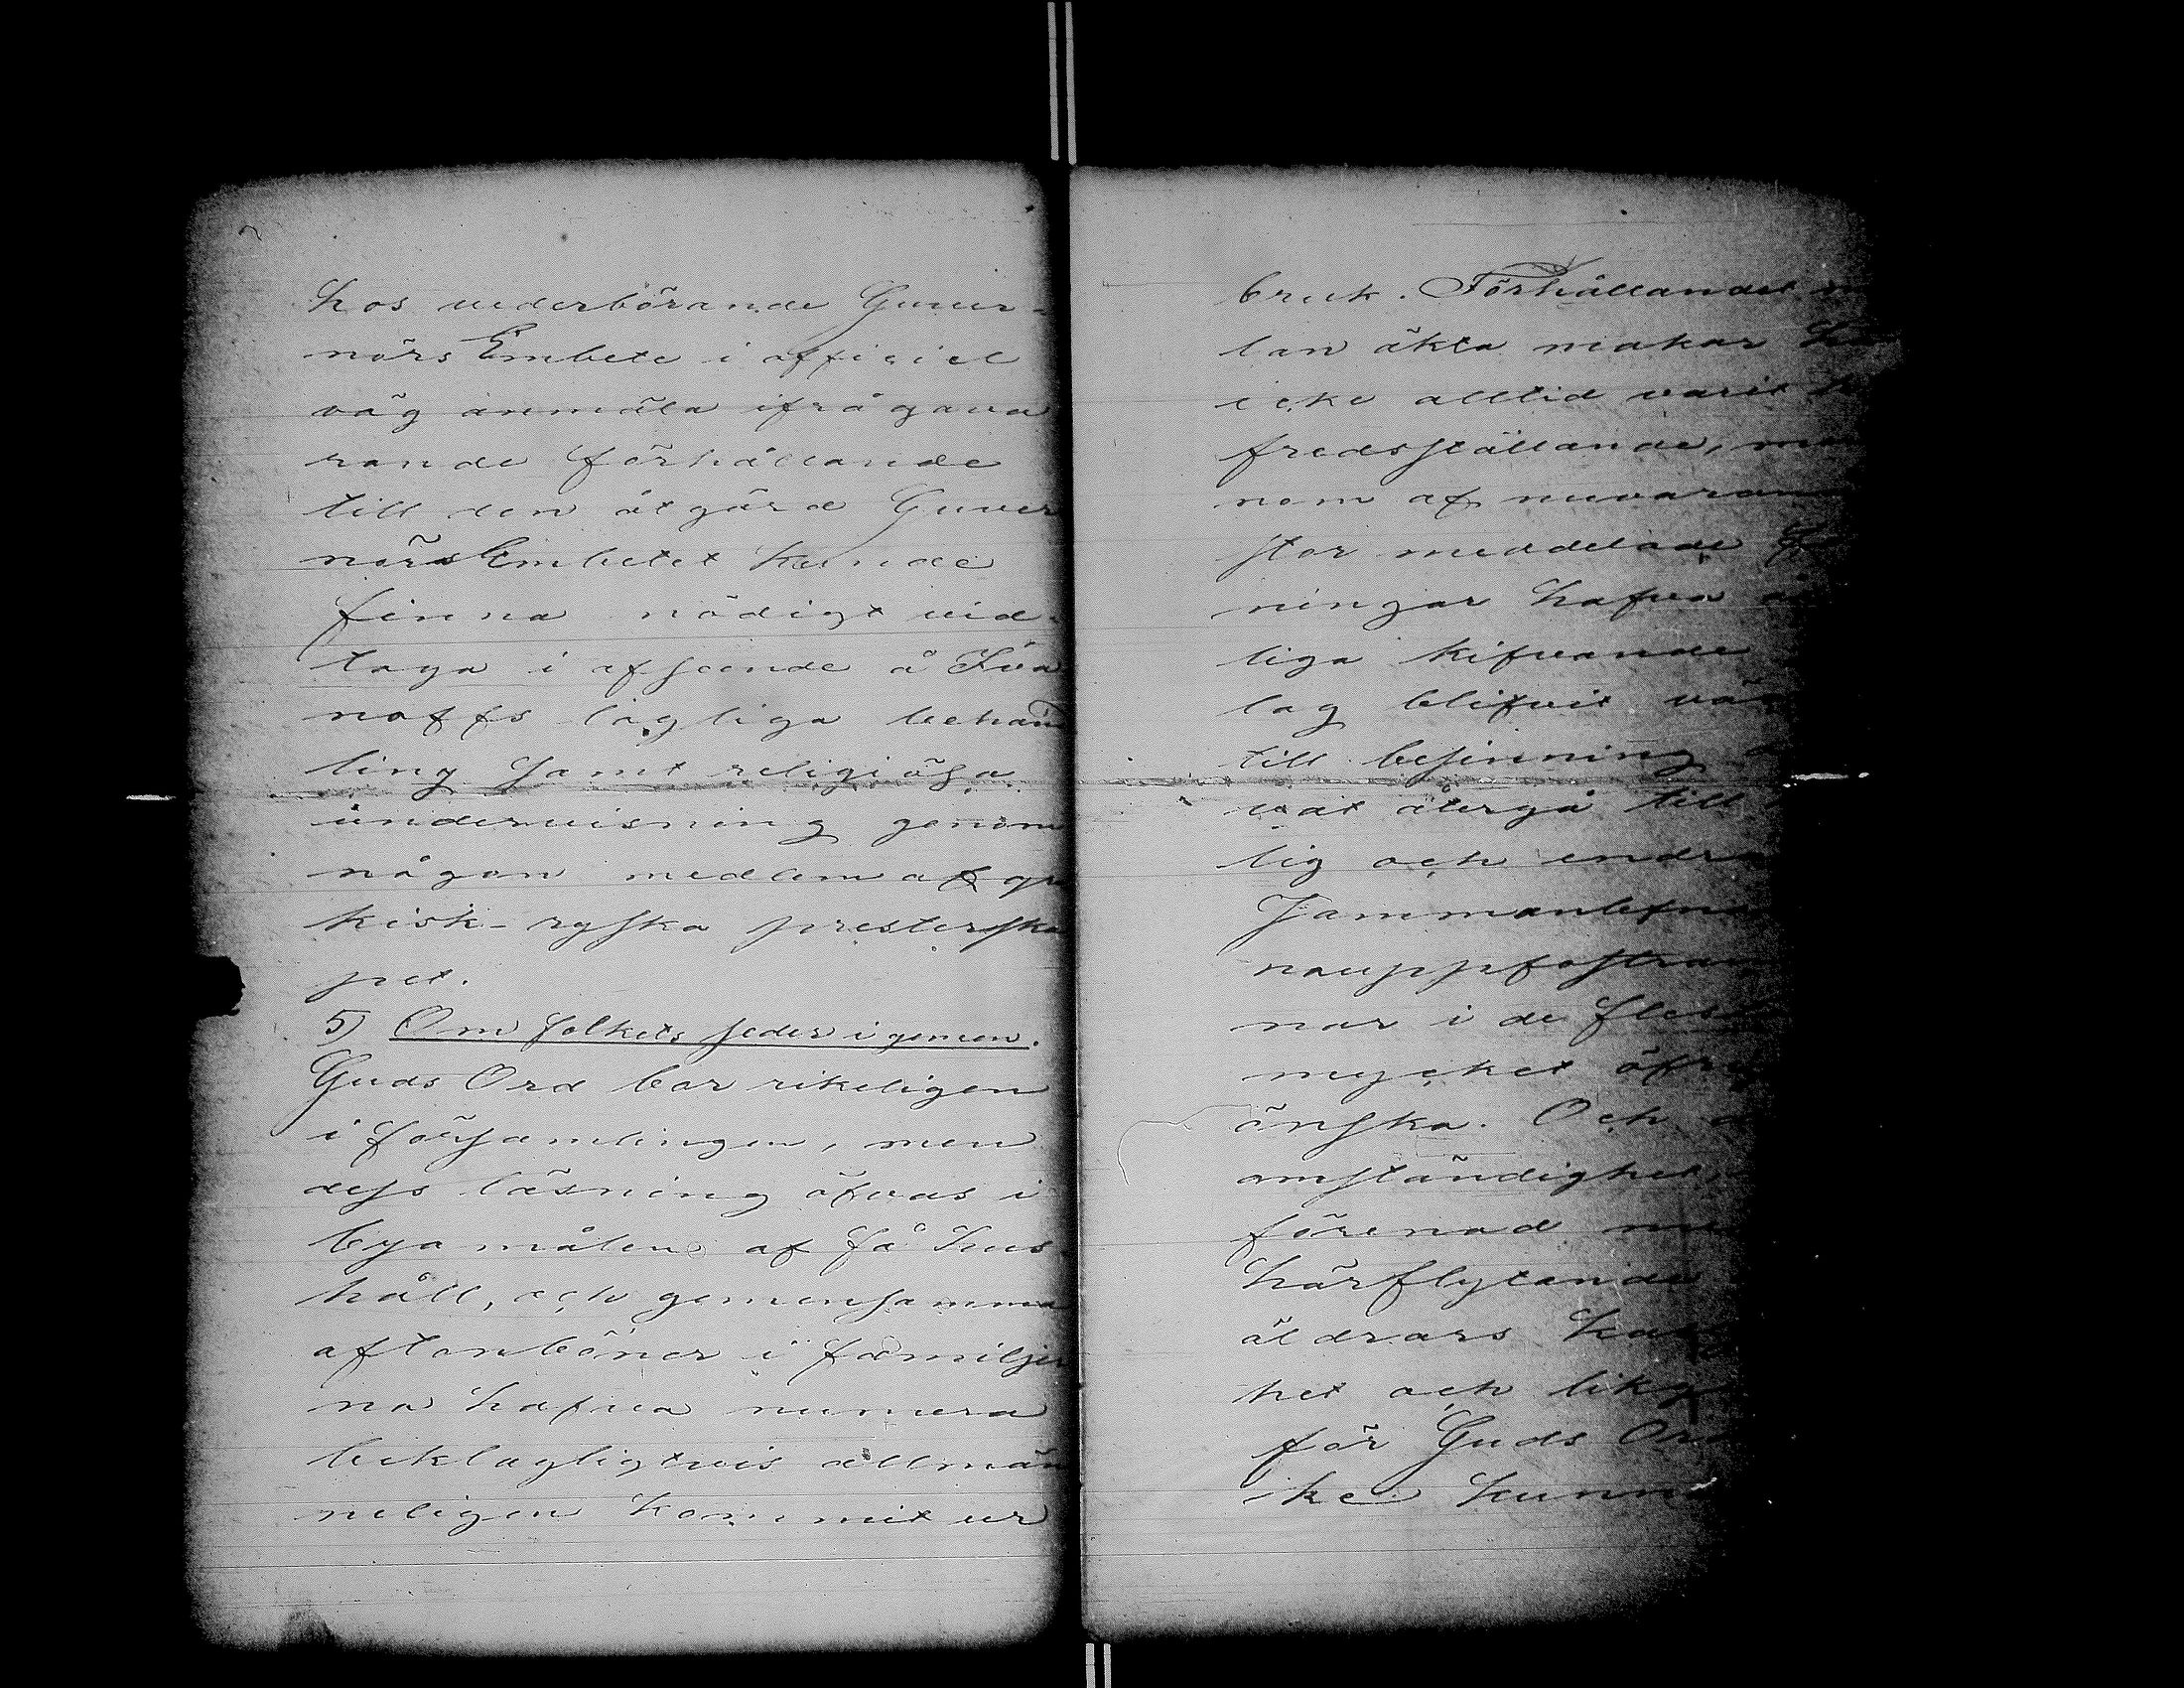 hos vederbörande Guver-
nörs Embete i officiel
väg anmäla ifrågava
rande förhållande
till den åtgärd Guver
nörs Embetet kunde
finna nödigt vid-
taga i afseende å Iva
noffs lagliga behand
ling samt religiösa
undervisning genom
någon medlem af gre
kisk-ryska presterska
pet.
5) Om folkets seder i gemen.
Guds Ord bor rikeligen
i församlingen, men
dess läsning öfvas i
byamålen af få hus-
håll, och gemensamma
aftonböner i familjer
na hafva numera
beklagligtvis allmän
neligen kommit ur
bruk. Förhållandet
lan äkta makar
icke alltid varit
fredsställande, men
nom af nuvarande
stor meddelade
ningar hafva
liga kifvande
lag blifvit
till besinning
vat återgå till
lig och endrä
Sammanlefnad
nauppfostran
nar i de flesta
mycket öfrigt
önska. Och
omständighet,
förenad med
härflytande
äldrars
het och likgi
för Guds Ord
ike kunna